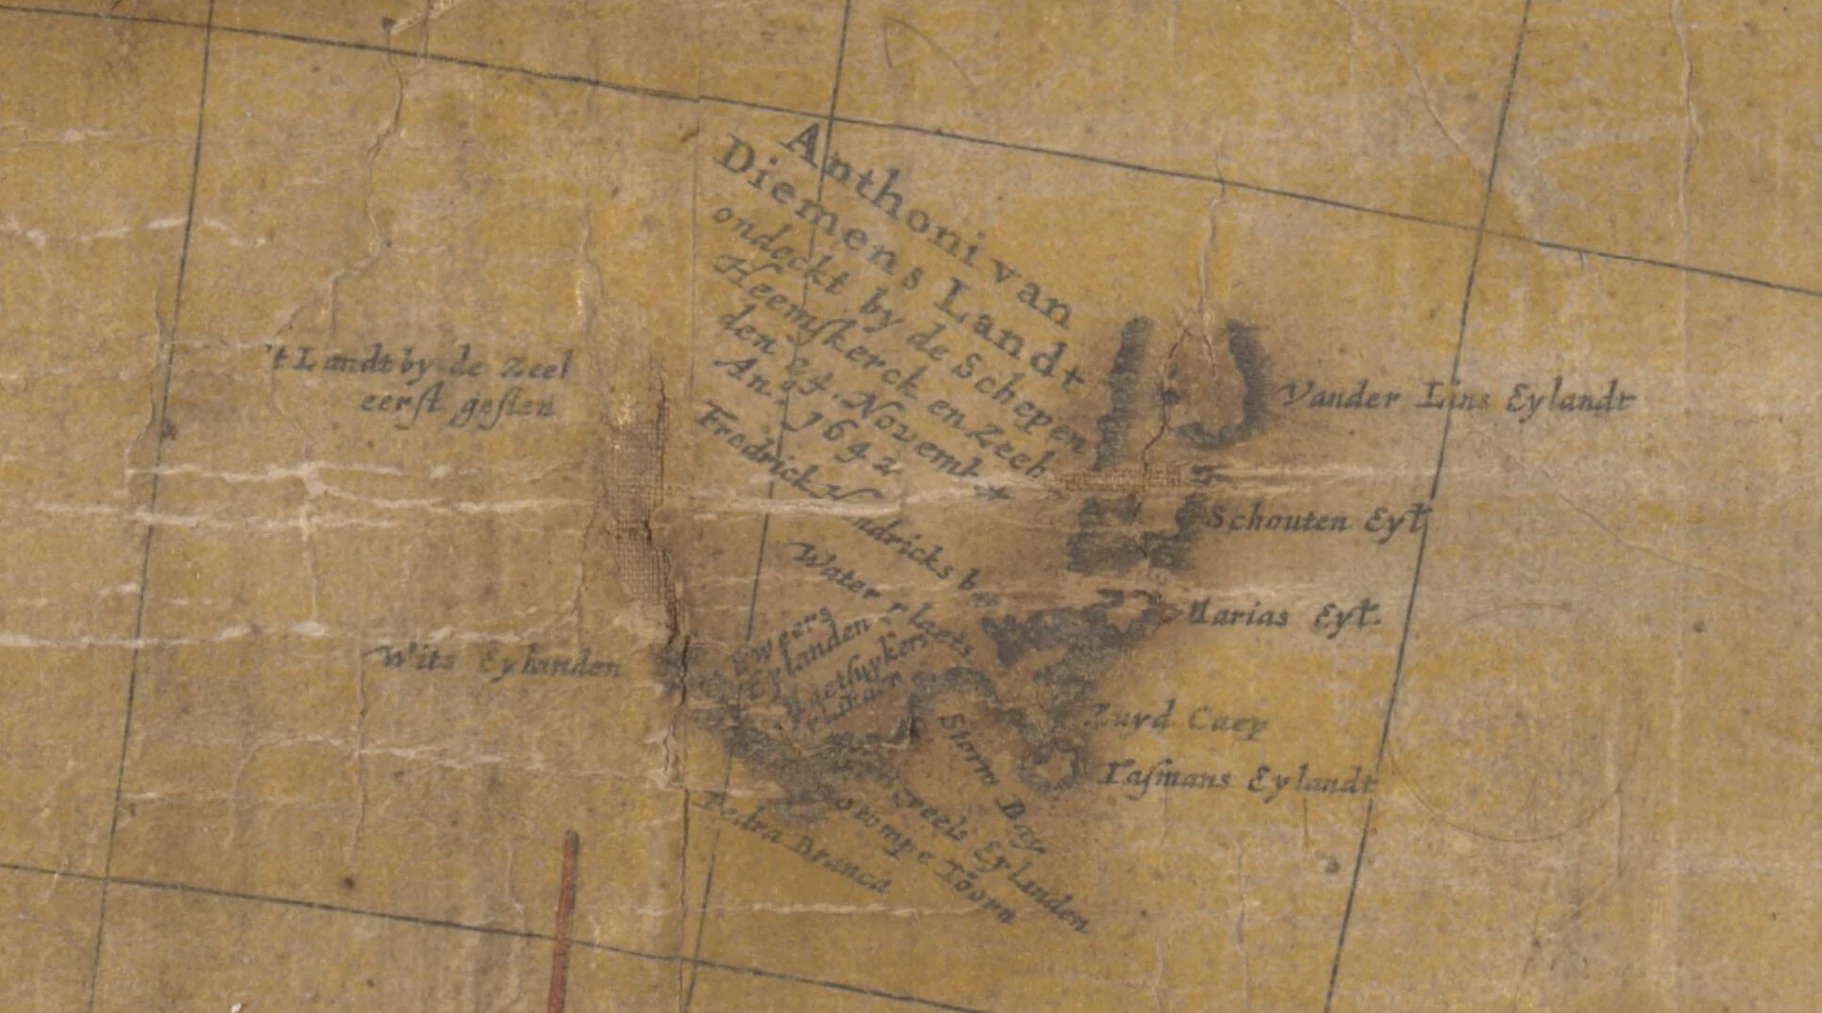 Anthoni van
Diemens Landt
ondeckt by de Schepen
Heemſkerck en Zeeh
den 24. Novemb
An⁰. 1642
't Landt by de Zeel
eerſt geſien
Vander Lins Eylandt
Fredrick Hendricks
Schouten Eyt
Water plaets
Marias Eyt.
Sweers
Eylanden
Wits Eylanden
Maetſuykers
Eylanden
Storm Bay
Zuyd Caep
Taſmans Eylandt
Eylanden
Toorn
Pedra Branca